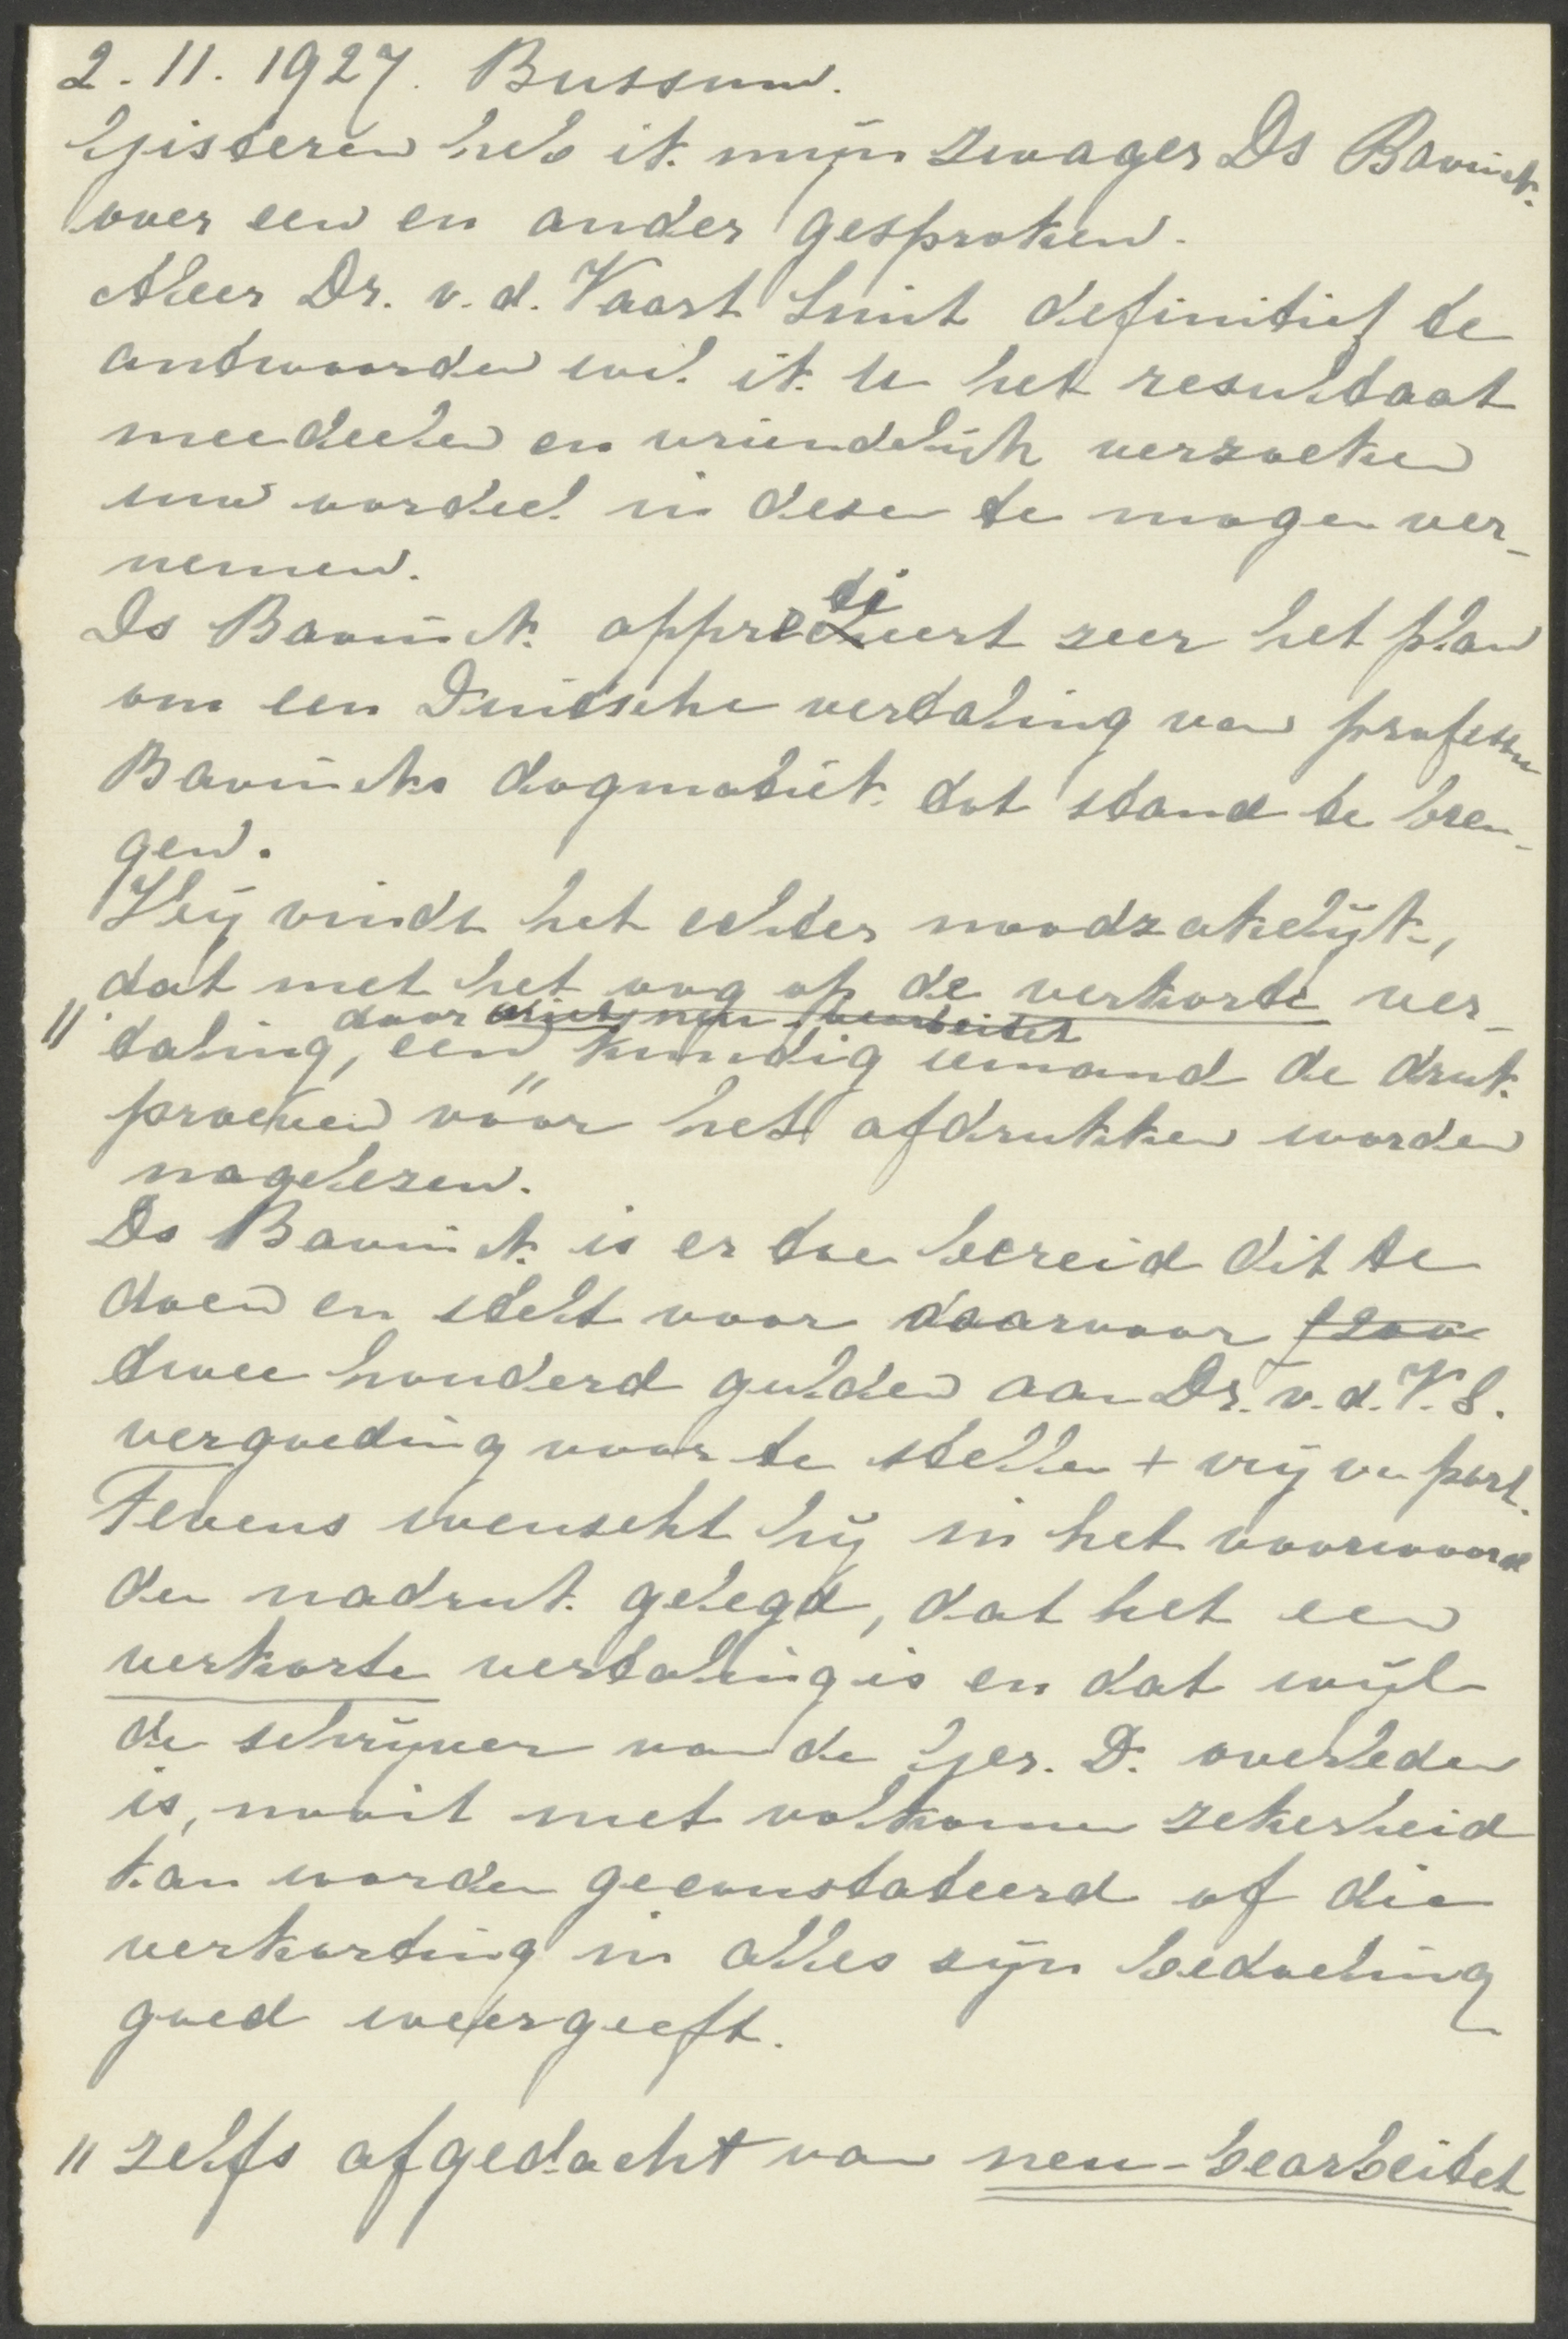 2.11.1927. Bussum.
Gisteren heb ik mijn zwager Ds Bavinck
over een en ander gesproken.
Alleer Dr. v.d. Vaart Smit definitief te
antwoorden wil ik U het resultaat
meedeelen en vriendelijk verzoeken
uw oordeel in dezen te mogen ver-
nemen.
Ds Bavinck appreciëert zeer het plan
om een Duitsche vertaling van professor
Bavincks dogmatiek tot stand te bren-
gen.
Hij vindt het echter noodzakelijk,
dat met het oog op de verkorte ver-
" taling, door een kundig iemand de druk
proeven vóór het afdrukken worden
nagelezen.
Ds Bavinck is er toe bereid dit te
doen en stelt voor daarvoor f200
twee honderd gulden aan Dr. v.d. V.S.
vergoeding voor te stellen + vrij van port.
Tevens wenscht hij in het voorwoord
den nadruk gelegd, dat het een
verkorte vertaling is en dat wijl
de schrijver van de Ger. D. overleden
is, nooit met volkomen zekerheid
kan worden geconstateerd of die
verkorting in alles zijn bedoeling
goed weergeeft.
" zelfs afgedacht van neu-bearbeitet